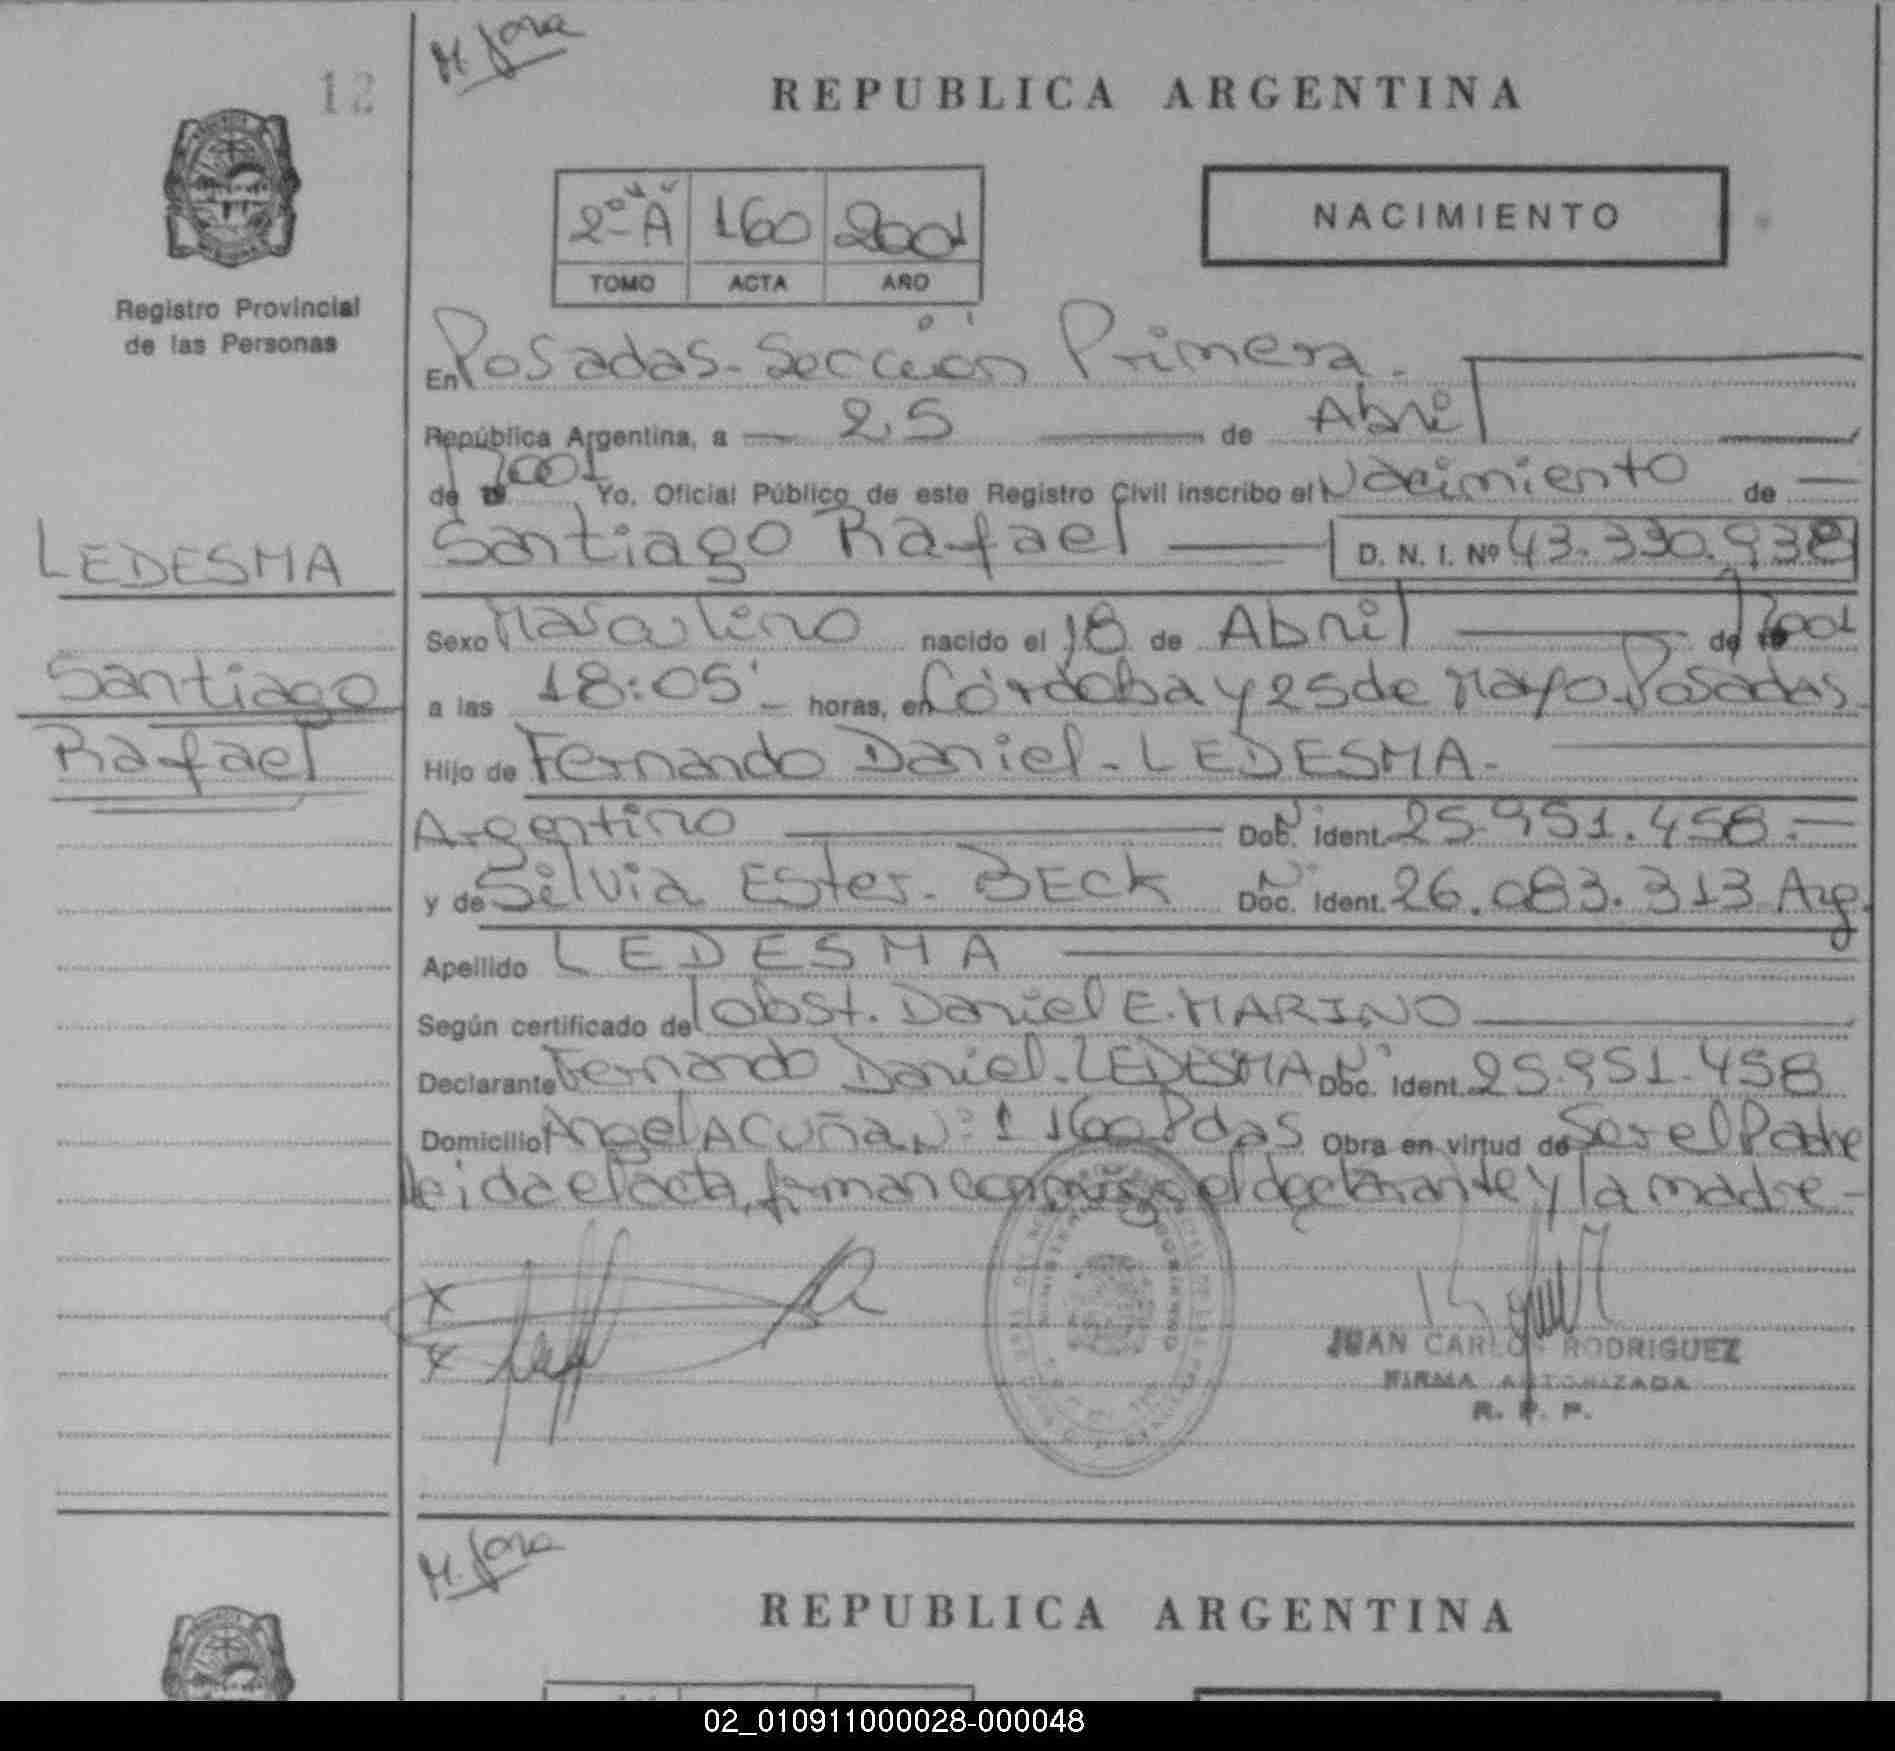 12
REPUBLICA ARGENTINA
NACIMIENTO
2º A 160 2001
TOMO ACTA AÑO
Registro Provincial
de las Personas
En Posadas - Sección Primera.
República Argentina, a 25 de Abril
de 2001 Yo, Oficial Público de este Registro Civil inscribo el Nacimiento de
Santiago Rafael D. N. I. Nº 43.330.938
LEDESMA
Santiago
Rafael
Sexo Masculino nacido el 18 de Abril de 2001
a las 18:05' horas, en Córdoba y 25 de Mayo Posadas
Hijo de Fernando Daniel - LEDESMA -
Argentino Doc. Ident. 25.951.458.-
y de Silvia Ester - BECK Doc. Ident. 26.083.313 Arg.
Apellido LEDESMA
Según certificado del obst. Daniel E. MARINO
Declarante Fernando Daniel - LEDESMA Nº Doc. Ident. 25.951.458
Domicilio Angel ACUÑA Nº 1160 Pdas Obra en virtud de Ser el Padre
leida el acta, firman conmigo el declarante y la madre -
x
x
JUAN CARLOS RODRIGUEZ
FIRMA AUTORIZADA
R. P. P.
REPUBLICA ARGENTINA
02_010911000028-000048